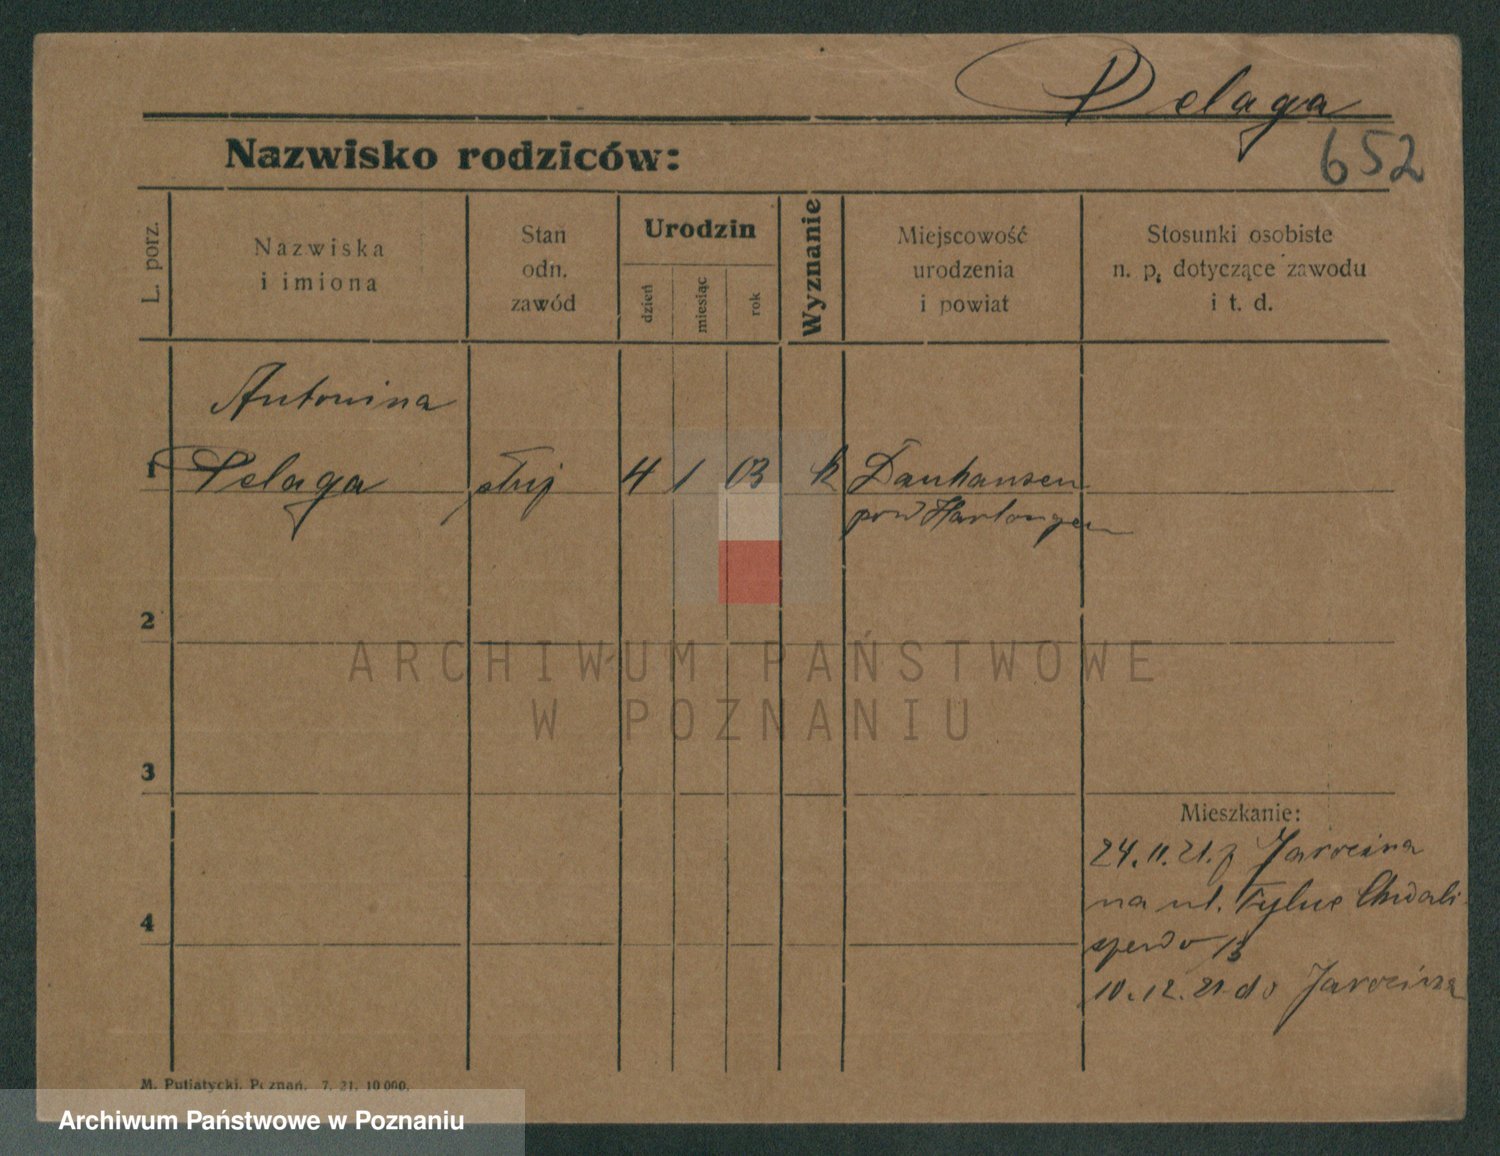 Pelaga
652
Nazwisko rodziców:
L. porz.
Nazwiska
i imiona
Stan
odn.
zawód
Urodzin
dzień
miesiąc
rok
Wyznanie
Miejscowość
urodzenia
i powiat
Stosunki osobiste
n. p. dotyczące zawodu
i t. d.
Antonina
1 Pelaga służ 4 1 03 k Dauhausen
pow Harlongen
2
3
4
Mieszkanie:
24.11.21. z Jarocina
na ul. Tylne Chwali
szewo 13
10.12.21 do Jarocina
M. Putiatycki, Poznań. 7. 21. 10 000.
ARCHIWUM PAŃSTWOWE
W POZNANIU
Archiwum Państwowe w Poznaniu